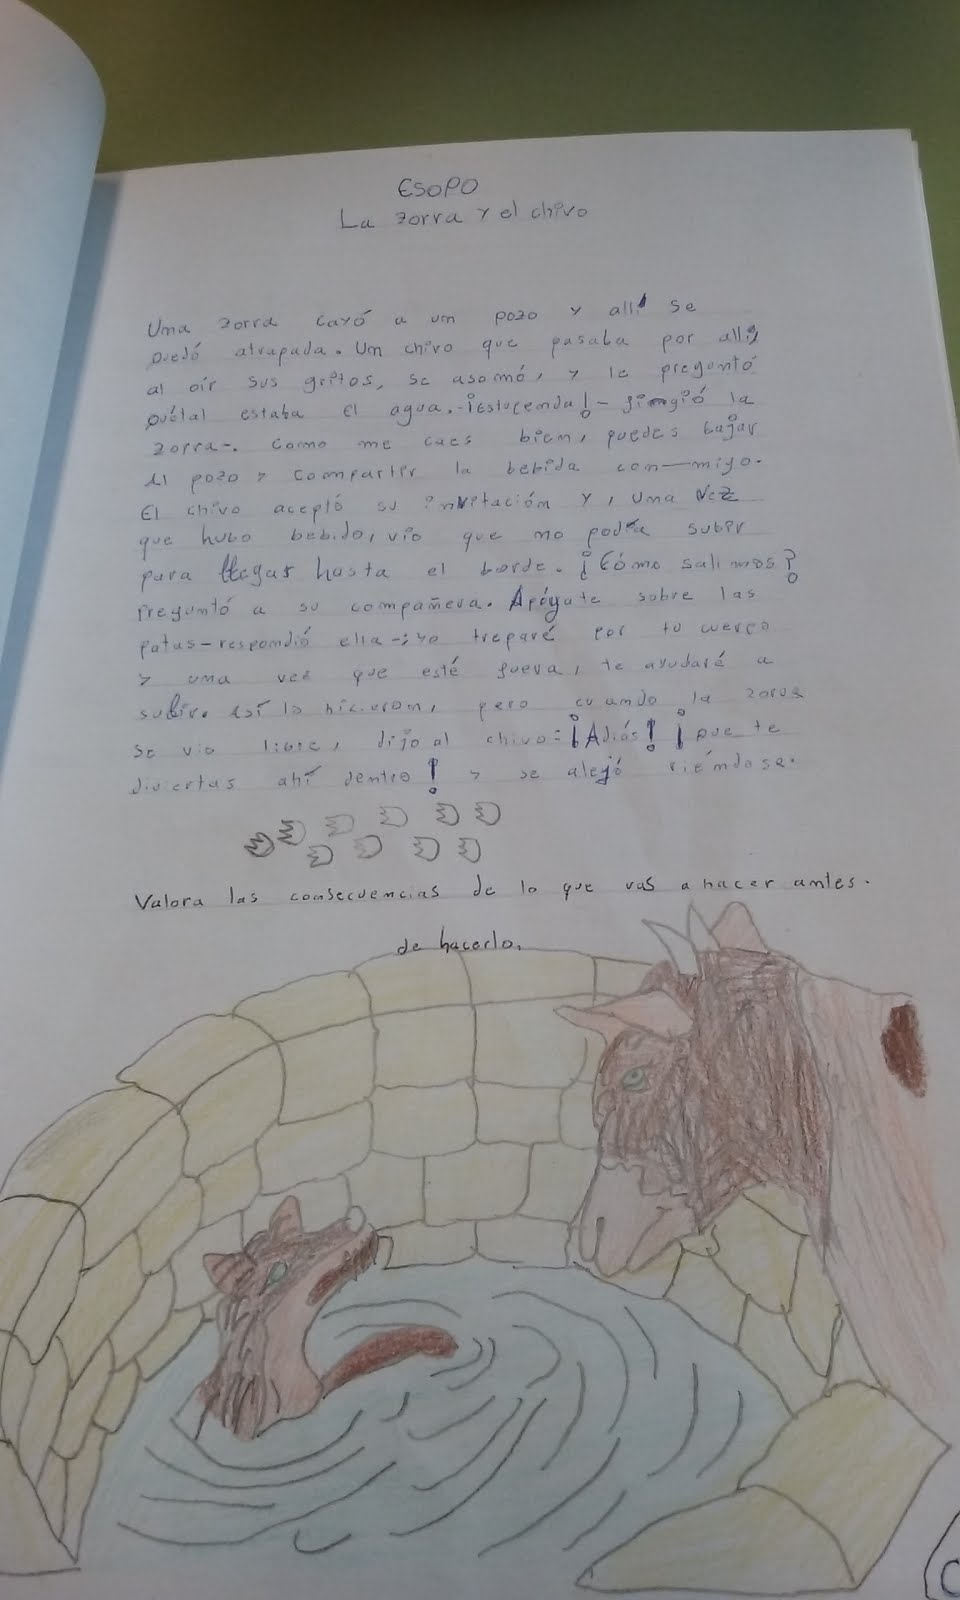 ESOPO
La zorra y el chivo
Una zorra cayó a un pozo y allí se
quedó atrapada. Un chivo que pasaba por allí,
al oír sus gritos, se asomó, y le preguntó
quétal estaba el agua. -¡estupenda!- fingió la
zorra-. Como me caes bien, puedes bajar
al pozo y compartir la bebida con-migo.
El chivo aceptó su invitación y, una vez
que hubo bebido, vio que no podía subir
para llegar hasta el borde. ¡Cómo salimos?
Preguntó a su compañera. Apóyate sobre las
patas-respondió ella-; yo treparé por tu cuerpo
y una vez que esté fuera, te ayudaré a
subir. así lo hicieron, pero cuando la zorra
se vio libre, dijo al chivo: ¡Adiós! ¡que te
diviertas ahí dentro! y se alejó riéndose.
Valora las consecuencias de lo que vas a hacer antes.
de hacerlo.